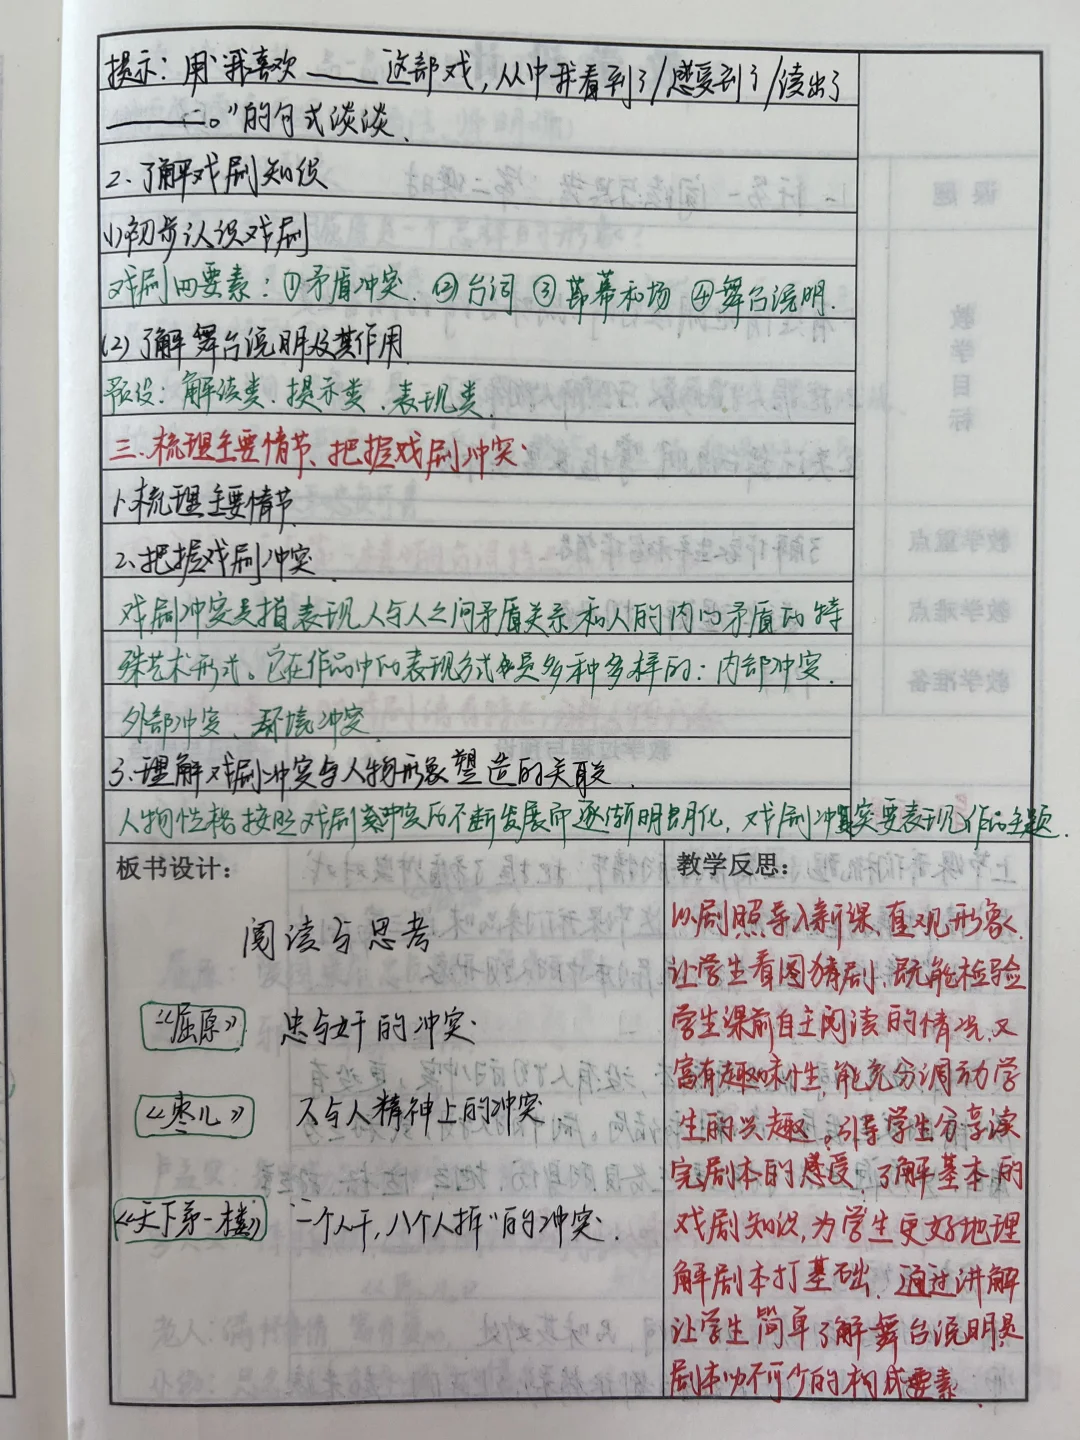 提示：用“我喜欢____这部戏，从中我看到了/感受到了/读出了
____。”的句式谈谈.
2.了解戏剧知识
(1)初步认识戏剧
戏剧四要素：①矛盾冲突.②台词③幕和场④舞台说明.
(2)了解舞台说明及其作用
预设：解读类、提示类、表现类.
三.梳理主要情节、把握戏剧冲突.
1.梳理主要情节
2.把握戏剧冲突.
戏剧冲突是指表现人与人之间矛盾关系和人的内心矛盾的特
殊艺术形式。它在作品中的表现方式是多种多样的：内部冲突.
外部冲突、环境冲突
3.理解戏剧冲突与人物形象塑造的关联.
人物性格按照戏剧冲突的不断发展而逐渐明朗化，戏剧冲突要表现作品主题.
板书设计：
阅读与思考
《屈原》 忠与奸的冲突.
《枣儿》 人与人精神上的冲突
《天下第一楼》 “一个人干，八个人拆”的冲突.
教学反思：
以剧照导入新课，直观形象.
让学生看图猜剧.既能检验
学生课前自主阅读的情况，又
富有趣味性，能充分调动学
生的兴趣。引导学生分享读
完剧本的感受，了解基本的
戏剧知识，为学生更好地理
解剧本打基础.通过讲解
让学生简单了解舞台说明是
剧本必不可少的构成要素.